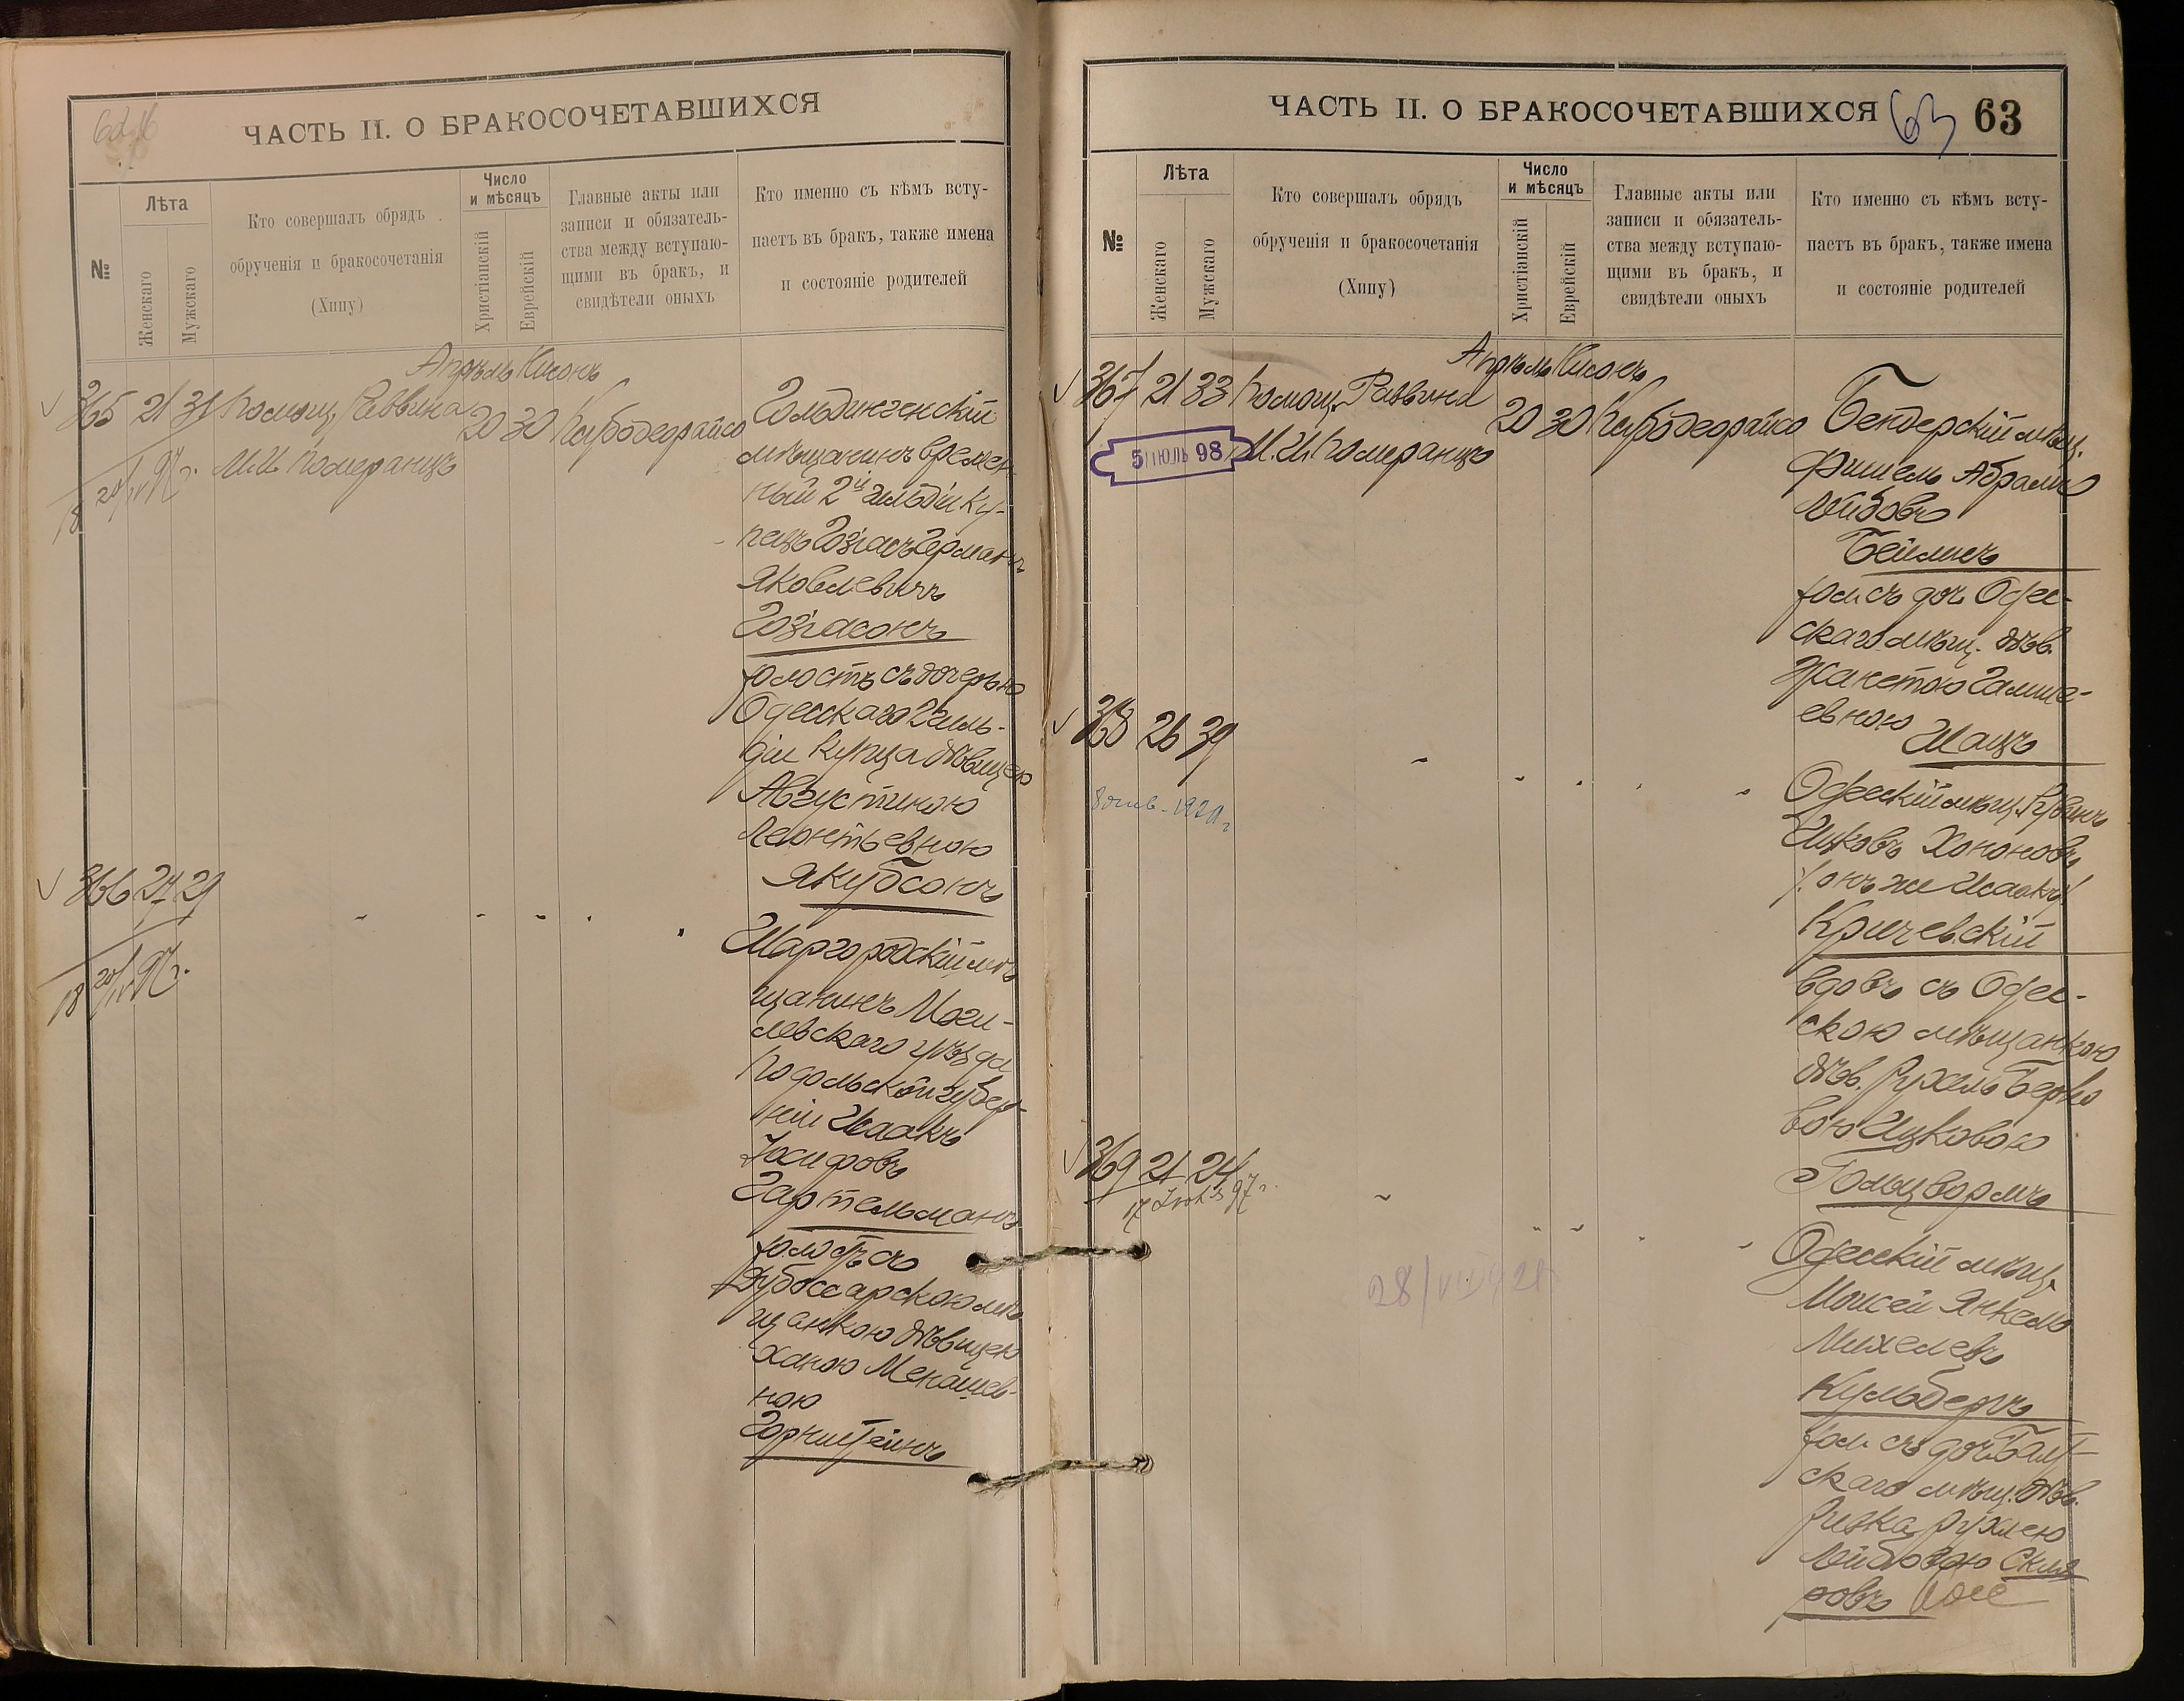 ЧАСТЬ II. О БРАКОСОЧЕТАВШИХСЯ
№
Лѣта
Женскаго
Мужскаго
Кто совершалъ обрядъ
обрученія и бракосочетанія
(Хипу)
Число
и мѣсяцъ
Христіанскій
Еврейскій
Главные акты или
записи и обязатель-
ства между вступаю-
щими въ бракъ, и
свидѣтели оныхъ
Кто именно съ кѣмъ всту-
паетъ въ бракъ, также имена
и состояніе родителей
Апрѣль Нисонъ
365 21 31 Помощ. Раввина 20 30
М.И. Померанцъ
Гольдингенскій
мѣщанинъ времен-
ный 2й гильдіи ку-
пецъ Германъ
Яковлевичъ
холостъ съ дочерью
Одесскаго 2 гиль-
діи купца дѣвицею
Августиною
Леонтьевною
Якубсонъ
18 20/IV 97 г.
366 24 29
18 20/IV 97 г.
Шаргородскій мѣ-
щанинъ Моги-
левскаго уѣзда
Подольской губер-
ніи Исаакъ
Іосифовъ
Гартельманъ
холостъ съ
Дубоссарскою мѣ-
щанкою дѣвицею
Ханою Менашев-
ною
Горнштейнъ
ЧАСТЬ II. О БРАКОСОЧЕТАВШИХСЯ 63 63
№
Лѣта
Женскаго
Мужскаго
Кто совершалъ обрядъ
обрученія и бракосочетанія
(Хипу)
Число
и мѣсяцъ
Христіанскій
Еврейскій
Главные акты или
записи и обязатель-
ства между вступаю-
щими въ бракъ, и
свидѣтели оныхъ
Кто именно съ кѣмъ всту-
паетъ въ бракъ, также имена
и состояніе родителей
Апрѣль Нисонъ
367 21 33 Помощ. Раввина 20 30
5 ІЮЛЬ 98
М.И. Померанцъ
Бендерскій мѣщ.
Фишель Абрамъ
Лейбовъ
Бейлинъ
хол. съ доч. Одес-
скаго мѣщ. дѣв.
Жанетою
евною Шацъ
368 26 39
1920 г
Одесскій мѣщ. Рувинъ
Ицковъ Хононовъ
/онъ же Исаакъ/
Кричевскій
вдовъ съ Одес-
скою мѣщанкою
дѣв. Рухель Берко
вою Ицковою
Гольцвормъ
369 21 24
97 г.
28/VIII 21
Одесскій мѣщ.
Моисей Янкель
Михелевъ
Кульбергъ
хол. съ доч. Балт-
скаго мѣщ. дѣв.
Ривка Рухлею
Лейбовою Скля
ровъ